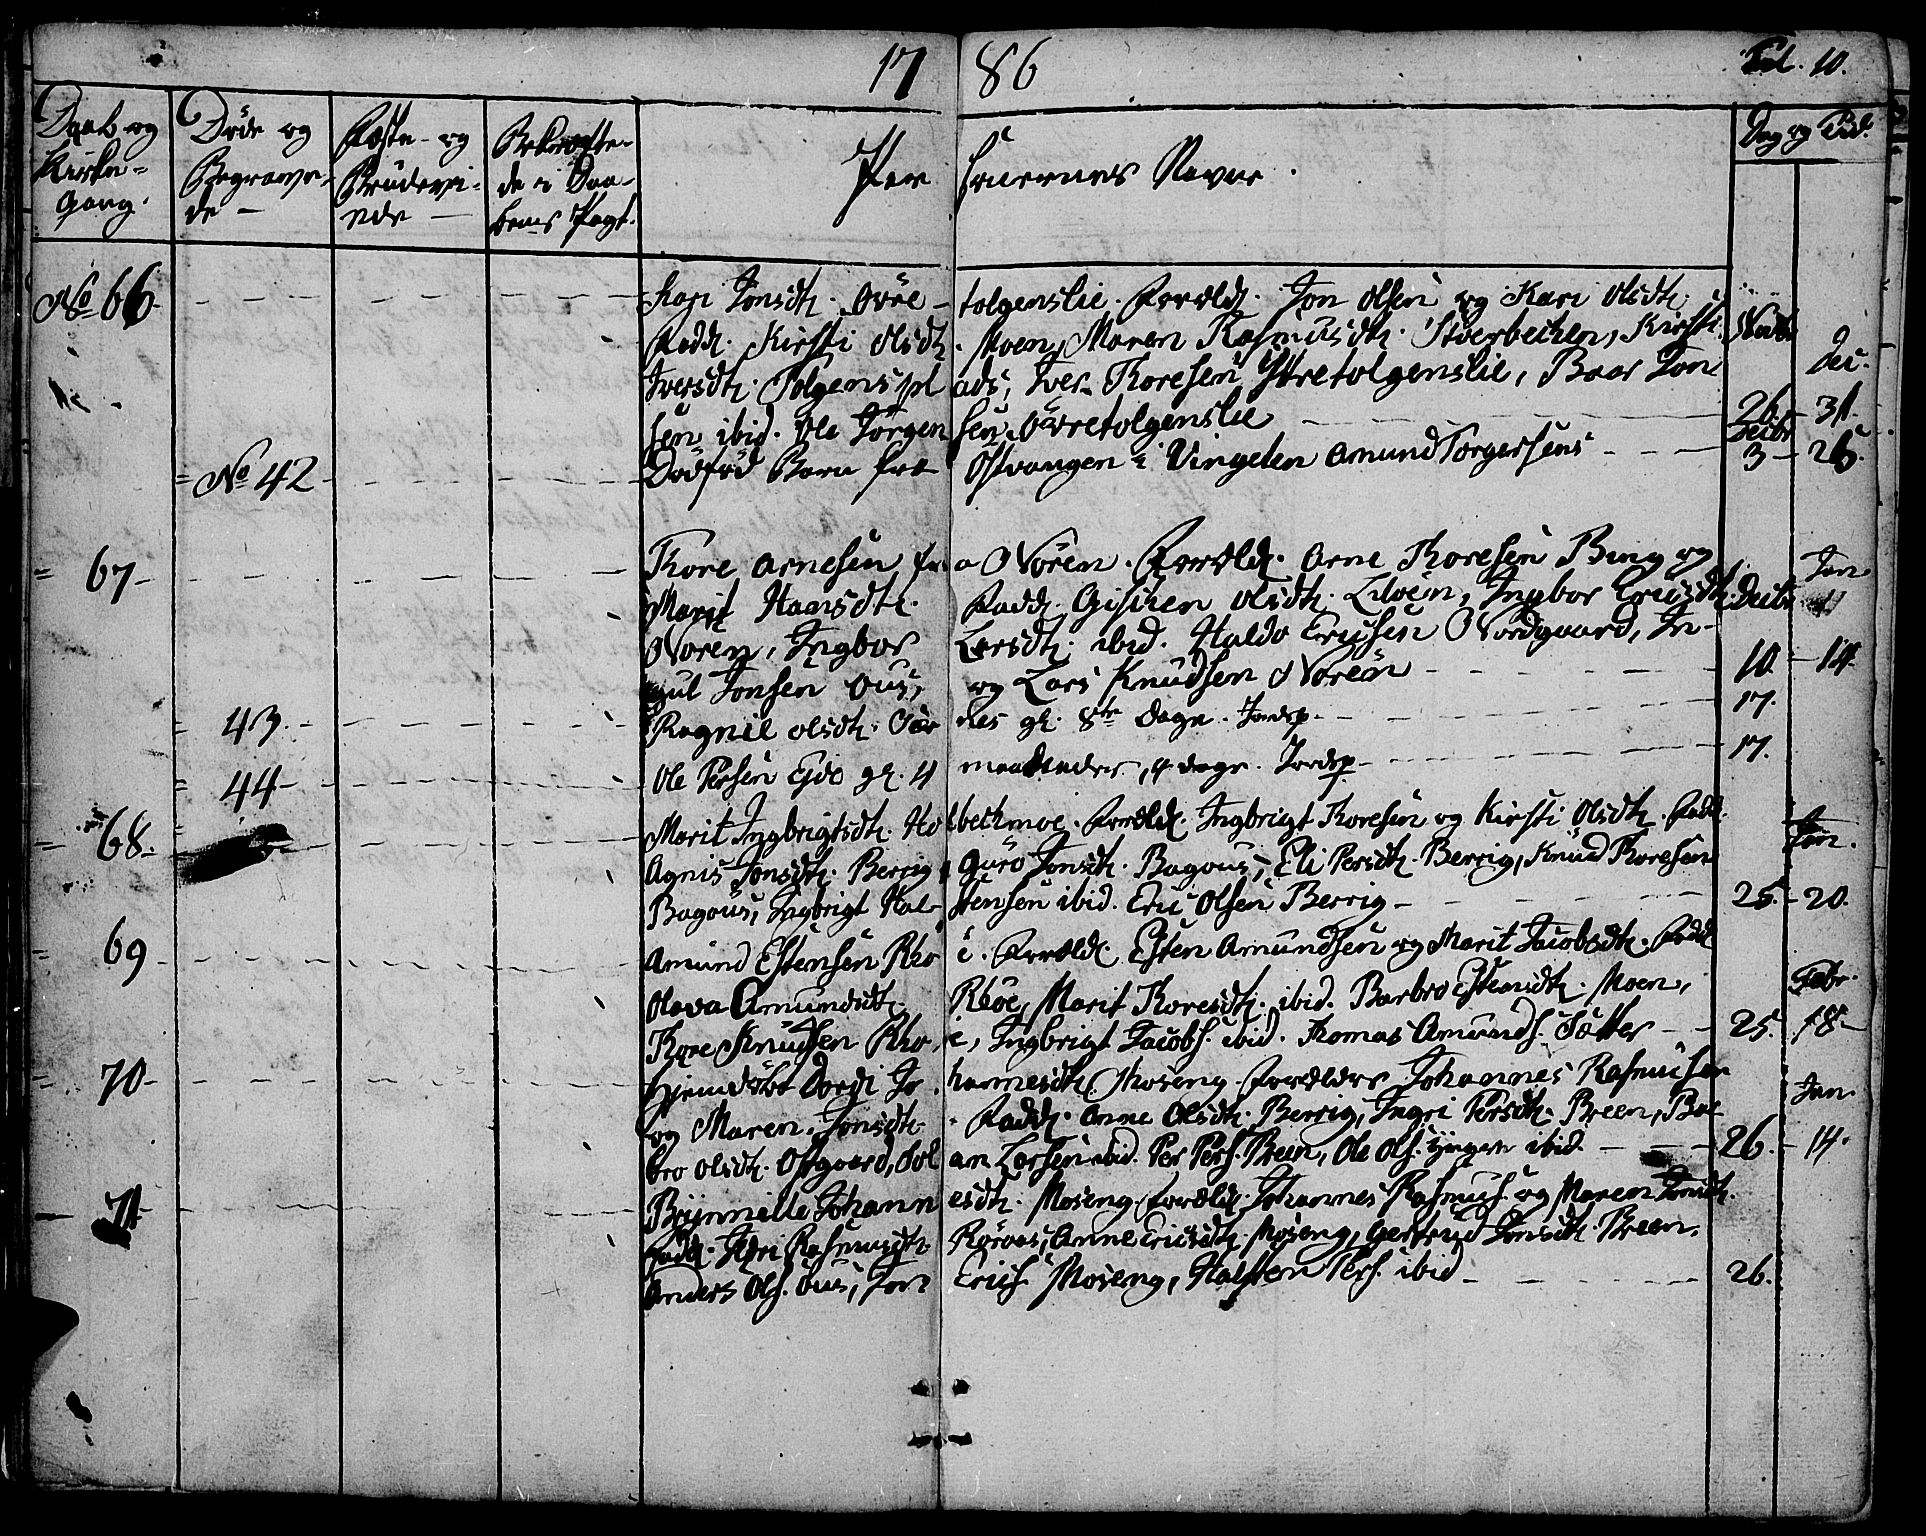 1786 Fol. 10.
Daab og Kirke= Gang.
Döde og Begrave- de -
Fæste- og Brudevi- ede -
Bekræfte- de i Daa- bens Pagt.
Personernes Navne.
Dag og Tid.
No 66. Kari Jonsdtr. Övre- tolgenslie. Foreldr. Jon Olsen og Kari Olsdtr.
Fadd. Kirsti Olsdtr. Moen, Maren Rasmusdtr. Stoerbecken, Kirsti Novbr
Iversdtr. Tolgens pl ads, Iver Thoresen Ytretolgenslie, Baar Jon- Dec.
sen ibid. Ole Jörgen sen Övretolgenslie 26. 31.
No 42 Dödföd Barn fra Östvangen i Vingelen Amund Torgersens Decbr 3 - 26.
67 - Thore Arnesen fra Nören. Foreldr. Arne Thoresen Bing og Jan.
Marit Hansdtr. Fadd. Gischen Olsdtr. Eloen, Ingbor Ericsdtr. Decbr
Noren, Ingbor Larsdtr. ibid. Haldo Ericsen Nordgaard, In-
gul Jonsen Ous, og Lars Knudsen Noren 10 - 14.
43. Ragnil Olsdtr. Sær nes gl. 8te Dage. Jordsp. 17.
44 - Ole Persen Eide gl. 4 maaneder, 4 dage. Jordsp. 17.
68. Marit Ingbrigtsdtr. Ho lbechmoe. Foreldr. Ingbrigt Thoresen og Kirsti Olsdtr. Fadd.
Agnis Jonsdtr. Berrig, Guro Jonsdtr. Bagous, Eli Persdtr. Berrig, Knud Thoresen Jan.
Bagous, Ingbrigt Hal- stensen ibid. Eric Olsen Berrig 25. - 20.
69 Amund Estensen Rho e. Foreldr. Esten Amundsen og Marit Jacobsdtr. Fadd.
Olava Amundsdtr. Rhoe, Marit Thoresdtr. ibid. Barbro Estensdtr. Moen, Febr.
Thore Knudsen Rho e, Ingbrigt Jacobs. ibid. Thomas Amunds. Sætter 25. 18 -
70 - Hjemdöbt Dordi Jo hannesdtr. Moseng. Foreldre Johannes Rasmusen
og Maren Jonsdtr. Fadd. Anne Olsdtr. Berrig, Ingri Persdtr. Breen, Bar- Jan.
bro Olsdtr. Ofgaard, Hal an Larsen ibid. Per Pers. Breen, Ole Ols. yngere ibid. 26. - 14.
71 Brynnille Johann esdtr. Moseng. Foreldr. Johannes Rasmus. og Maren Jonsdtr.
Fadd. Idri Rasmusdtr. Röraas, Anne Ericsdtr. Moseng, Gertrud Jonsdtr. Breen.
Anders Ols. Ous, Jon Erics. Moseng, Halsten Pers. ibid 26.